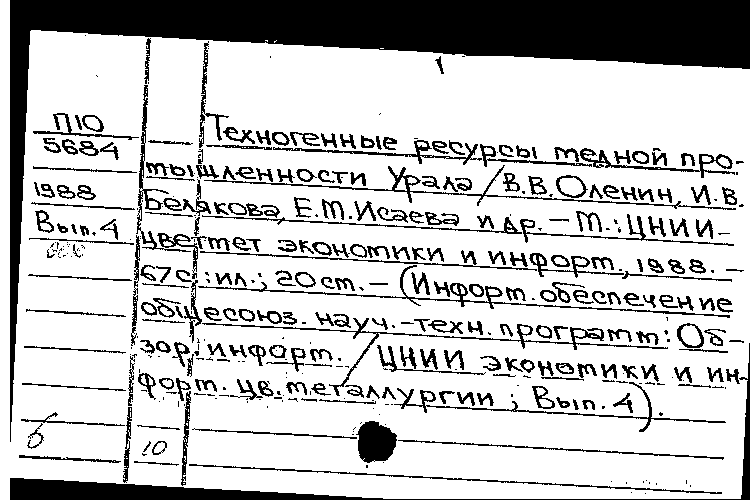 П10
5684
1988
Вып. 4
Техногенные ресурсы медной про-
мышленности Урала / В.В.Оленин, И.В.
Белякова, Е.М.Исаева и др. – М.: ЦНИИ-
цветмет экономики и информ., 1988. –
67с.: ил.; 20см. – (Информ. обеспечение
общесоюз. науч.-техн. программ: Об-
зор. информ. / ЦНИИ экономики и ин-
форм. цв. металлургии; Вып. 4).
б 10